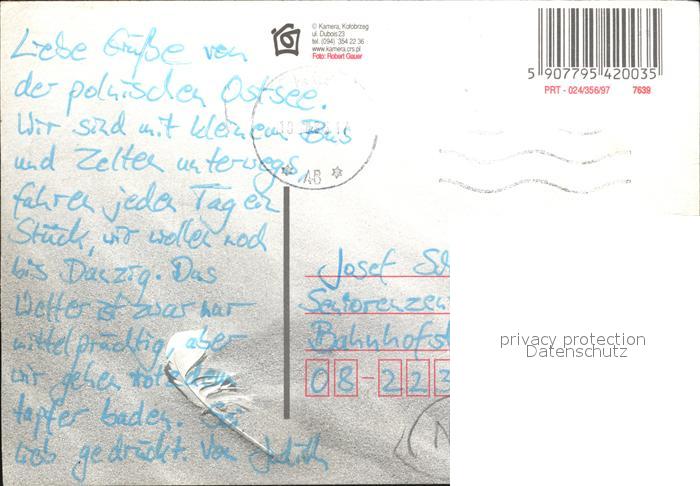 Liebe Grüße von
der polnischen Ostsee.
Wir sind mit kleinem Bus
und Zelten unterwegs,
fahren jeden Tag ein
Stück, wir wollen noch
bis Danzig. Das
Wetter ist zwar nur
mittelprächtig, aber
wir gehen trotzdem
tapfer baden. Sei
lieb gedrückt. Von Judith
© Kamera, Kołobrzeg
ul. Dubois 23
tel. (094) 354 22 36
www.kamera.crs.pl
Foto: Robert Gauer
5 907795 420035
PRT - 024/356/97 7639
AB
Josef
Seniorenzen
Bahnhofst
08-223
privacy protection
Datenschutz